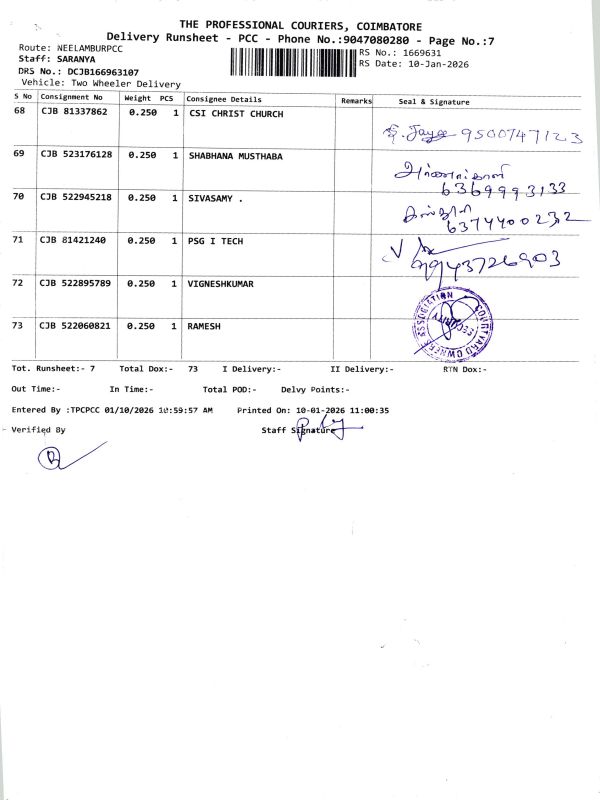 THE PROFESSIONAL COURIERS, COIMBATORE
Delivery Runsheet - PCC - Phone No.:9047080280 - Page No.:7
Route: NEELAMBURPCC
Staff: SARANYA
DRS No.: DCJB166963107
Vehicle: Two Wheeler Delivery
RS No.: 1669631
RS Date: 10-Jan-2026
S No Consignment No Weight PCS Consignee Details Remarks Seal & Signature
68 CJB 81337862 0.250 1 CSI CHRIST CHURCH
9500747123
69 CJB 523176128 0.250 1 SHABHANA MUSTHABA
6369993133
70 CJB 522945218 0.250 1 SIVASAMY .
6374400232
71 CJB 81421240 0.250 1 PSG I TECH
72 CJB 522895789 0.250 1 VIGNESHKUMAR
73 CJB 522060821 0.250 1 RAMESH
COURTYARD OWNERS ASSOCIATION
SECURITY
Tot. Runsheet:- 7 Total Dox:- 73 I Delivery:- II Delivery:- RTN Dox:-
Out Time:- In Time:- Total POD:- Delvy Points:-
Entered By :TPCPCC 01/10/2026 10:59:57 AM Printed On: 10-01-2026 11:00:35
Verified By Staff Signature